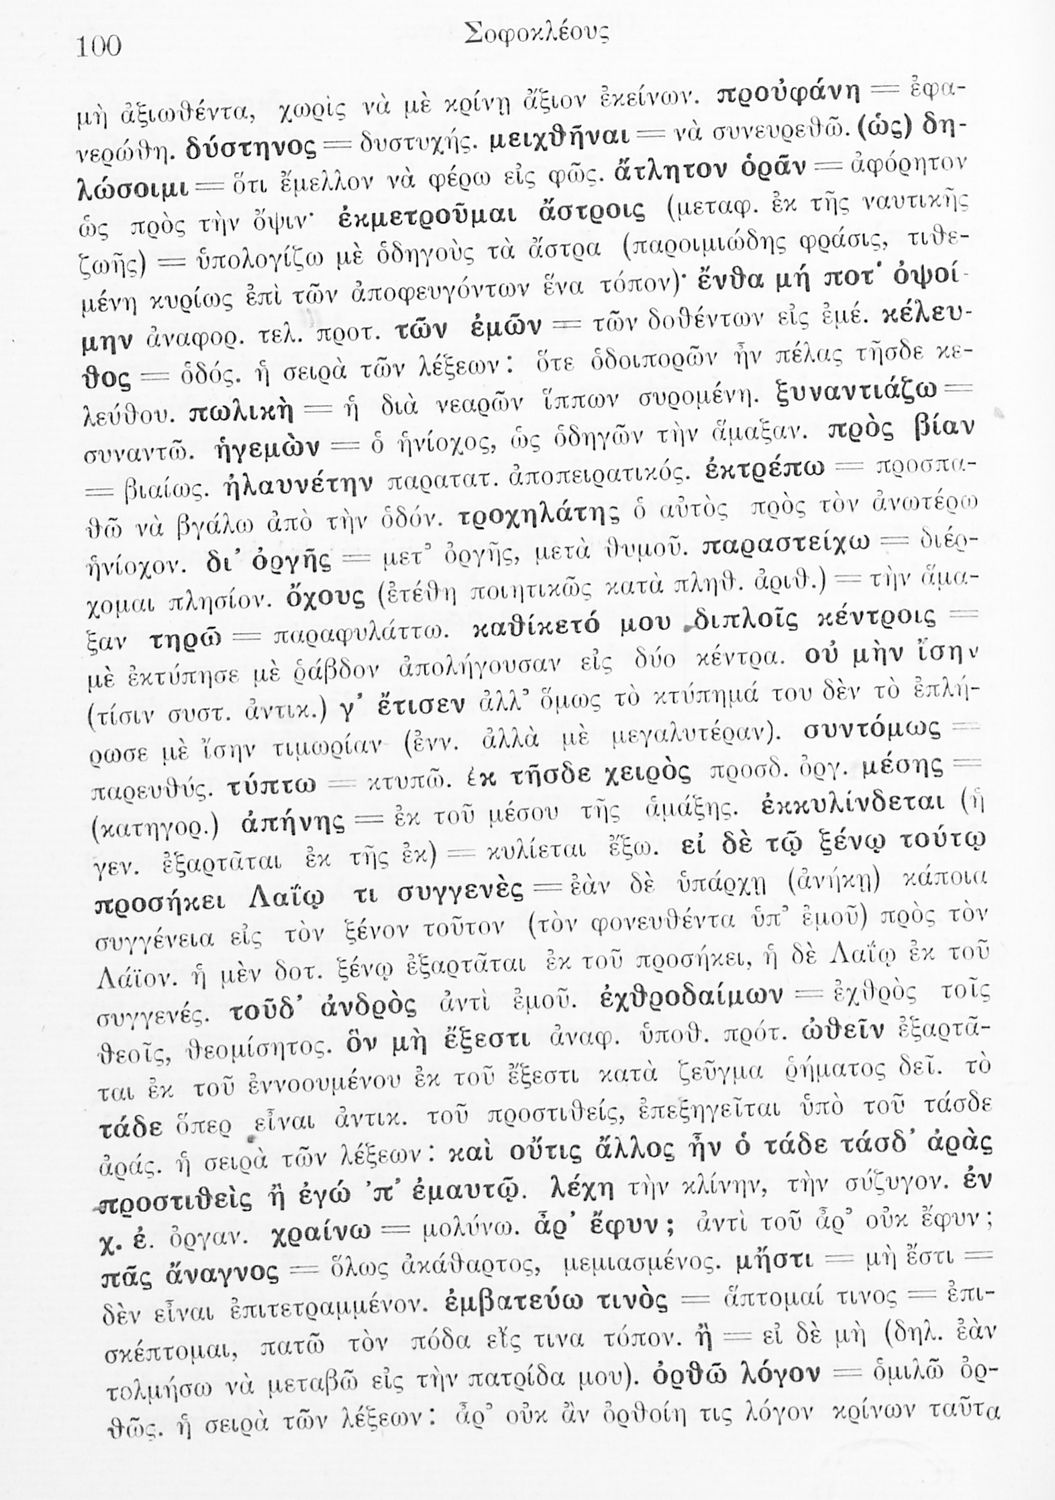 100
Σοφοκλέους
μὴ ἀξιωθέντα, χωρὶς νὰ μὲ κρίνῃ ἄξιον ἐκείνων. προὐφάνη = ἐφα-
νερώθη. δύστηνος = δυστυχής. μειχθῆναι = νὰ συνευρεθῶ. (ὡς) δη-
λώσοιμι = ὅτι ἔμελλον νὰ φέρω εἰς φῶς. ἄτλητον ὁρᾶν = ἀφόρητον
ὡς πρὸς τὴν ὄψιν· ἐκμετροῦμαι ἄστροις (μεταφ. ἐκ τῆς ναυτικῆς
ζωῆς) = ὑπολογίζω μὲ ὁδηγοὺς τὰ ἄστρα (παροιμιώδης φράσις, τιθε-
μένη κυρίως ἐπὶ τῶν ἀποφευγόντων ἕνα τόπον)· ἔνθα μή ποτ᾽ ὀψοί-
μην ἀναφορ. τελ. προτ. τῶν ἐμῶν = τῶν δοθέντων εἰς ἐμέ. κέλευ-
θος = ὁδός. ἡ σειρὰ τῶν λέξεων: ὅτε ὁδοιπορῶν ἦν πέλας τῆσδε κε-
λεύθου. πωλικὴ = ἡ διὰ νεαρῶν ἵππων συρομένη. ξυναντιάζω =
συναντῶ. ἡγεμὼν = ὁ ἡνίοχος, ὡς ὁδηγῶν τὴν ἅμαξαν. πρὸς βίαν
= βιαίως. ἠλαυνέτην παρατατ. ἀποπειρατικός. ἐκτρέπω = προσπα-
θῶ νὰ βγάλω ἀπὸ τὴν ὁδόν. τροχηλάτης ὁ αὐτὸς πρὸς τὸν ἀνωτέρω
ἡνίοχον. δι᾽ ὀργῆς = μετ᾽ ὀργῆς, μετὰ θυμοῦ. παραστείχω = διέρ-
χομαι πλησίον. ὄχους (ἐτέθη ποιητικῶς κατὰ πληθ. ἀριθ.) = τὴν ἅμα-
ξαν τηρῶ = παραφυλάττω. καθίκετό μου διπλοῖς κέντροις =
μὲ ἐκτύπησε μὲ ῥάβδον ἀπολήγουσαν εἰς δύο κέντρα. οὐ μὴν ἴσην
(τίσιν συστ. ἀντικ.) γ᾽ ἔτισεν ἀλλ᾽ ὅμως τὸ κτύπημά του δὲν τὸ ἐπλή-
ρωσε μὲ ἴσην τιμωρίαν (ἐνν. ἀλλὰ μὲ μεγαλυτέραν). συντόμως =
παρευθύς. τύπτω = κτυπῶ. ἐκ τῆσδε χειρὸς προσδ. ὀργ. μέσης =
(κατηγορ.) ἀπήνης = ἐκ τοῦ μέσου τῆς ἁμάξης. ἐκκυλίνδεται (ἡ
γεν. ἐξαρτᾶται ἐκ τῆς ἐκ) = κυλίεται ἔξω. εἰ δὲ τῷ ξένῳ τούτῳ
προσήκει Λαΐῳ τι συγγενὲς = ἐὰν δὲ ὑπάρχῃ (ἀνήκῃ) κάποια
συγγένεια εἰς τὸν ξένον τοῦτον (τὸν φονευθέντα ὑπ᾽ ἐμοῦ) πρὸς τὸν
Λάϊον. ἡ μὲν δοτ. ξένῳ ἐξαρτᾶται ἐκ τοῦ προσήκει, ἡ δὲ Λαΐῳ ἐκ τοῦ
συγγενές. τοῦδ᾽ ἀνδρὸς ἀντὶ ἐμοῦ. ἐχθροδαίμων = ἐχθρὸς τοῖς
θεοῖς, θεομίσητος. ὃν μὴ ἔξεστι ἀναφ. ὑποθ. πρότ. ὠθεῖν ἐξαρτᾶ-
ται ἐκ τοῦ ἐννοουμένου ἐκ τοῦ ἔξεστι κατὰ ζεῦγμα ῥήματος δεῖ. τὸ
τάδε ὅπερ εἶναι ἀντικ. τοῦ προστιθείς, ἐπεξηγεῖται ὑπὸ τοῦ τάσδε
ἀράς. ἡ σειρὰ τῶν λέξεων: καὶ οὔτις ἄλλος ἦν ὁ τάδε τάσδ᾽ ἀρὰς
προστιθεὶς ἢ ἐγώ ᾽π᾽ ἐμαυτῷ. λέχη τὴν κλίνην, τὴν σύζυγον. ἐν
χ. ἐ. ὀργαν. χραίνω = μολύνω. ἆρ᾽ ἔφυν; ἀντὶ τοῦ ἆρ᾽ οὐκ ἔφυν;
πᾶς ἄναγνος = ὅλως ἀκάθαρτος, μεμιασμένος. μἤστι = μὴ ἔστι =
δὲν εἶναι ἐπιτετραμμένον. ἐμβατεύω τινὸς = ἅπτομαί τινος = ἐπι-
σκέπτομαι, πατῶ τὸν πόδα εἴς τινα τόπον. ἢ = εἰ δὲ μὴ (δηλ. ἐὰν
τολμήσω νὰ μεταβῶ εἰς τὴν πατρίδα μου). ὀρθῶ λόγον = ὁμιλῶ ὀρ-
θῶς. ἡ σειρὰ τῶν λέξεων: ἆρ᾽ οὐκ ἂν ὀρθοίη τις λόγον κρίνων ταῦτα